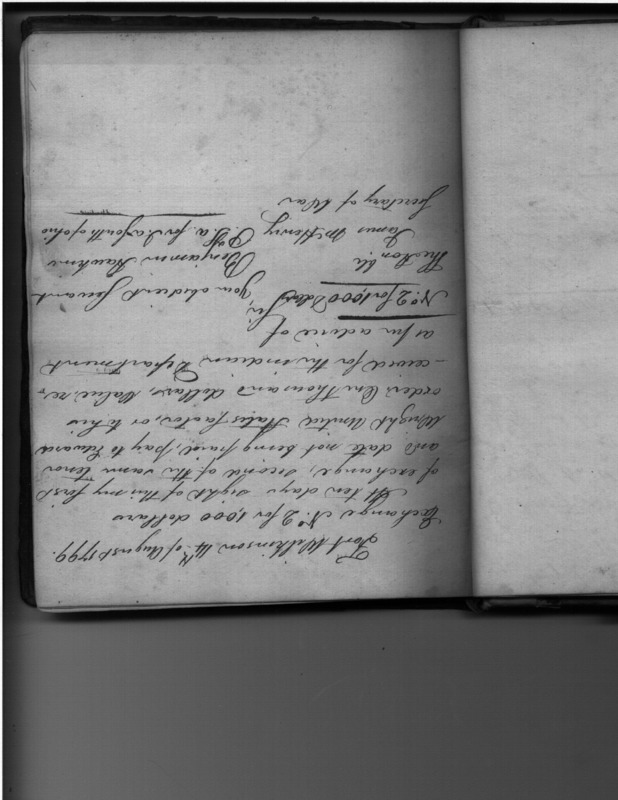 Fort Wilkinson 14th of August 1799.
Exchange No. 2 for 1,000 dollars
At ten days sight of this my first
of exchange, second of the same tenor
and date not being paid, pay to Edward
Wright United States factor, or to his
order One Thousand dollars, Value re-
-ceived for the indian Department
as per advice of
No. 2 for 1,000 dolls Sir,
your obedient Servant
Benjamin Hawkins
The Honble.
James McHenry P. T. A. for I. A. South of Ohio
Secretary of War